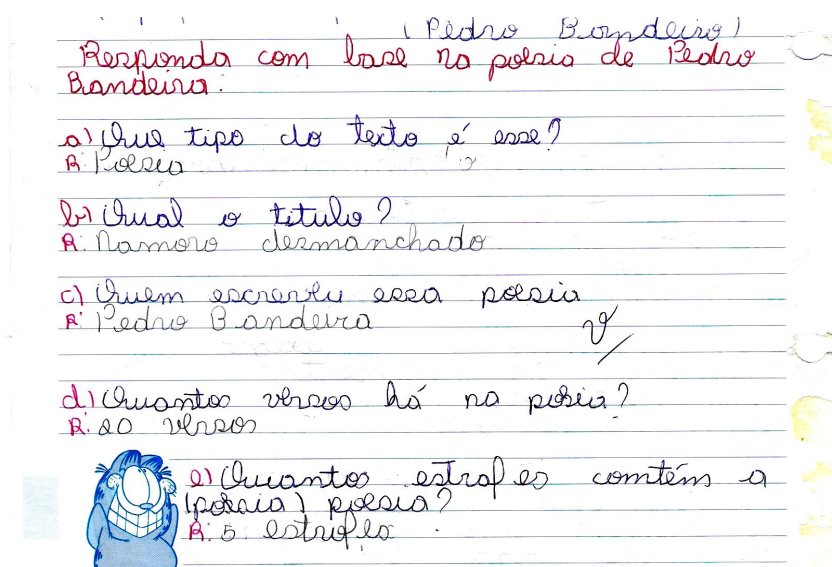 (Pedro Bandeira)
Responda com base na poesia de Pedro
Bandeira.
a) Que tipo do texto é esse?
R: Poesia
b) Qual o titulo?
R: Namoro desmanchado
c) Quem escreveu essa poesia
R: Pedro Bandeira
d) Quantos versos há na poseia?
R: 20 versos
e) Quantos estrofes comtém a
(poesia) poesia?
R: 5 estrofes.